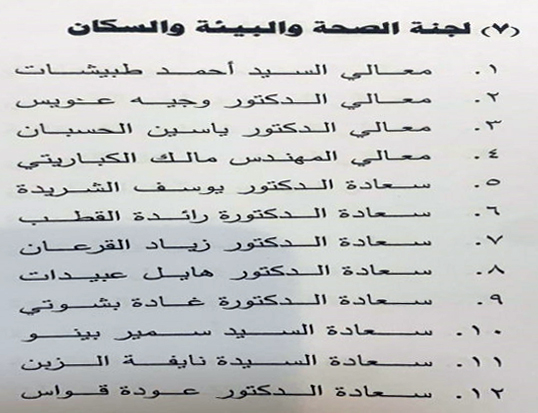 (٧) لجنة الصحة والبيئة والسكان
١. معالي السيد أحمد طبيشات
٢. معالي الدكتور وجيه عويس
٣. معالي الدكتور ياسين الحسبان
٤. معالي المهندس مالك الكباريتي
٥. سعادة الدكتور يوسف الشريدة
٦. سعادة الدكتورة رائدة القطب
٧. سعادة الدكتور زياد القرعان
٨. سعادة الدكتور هايل عبيدات
٩. سعادة الدكتورة غادة بشوتي
١٠. سعادة السيد سمير بينو
١١. سعادة السيدة نايفة الزبن
١٢. سعادة الدكتور عودة قواس